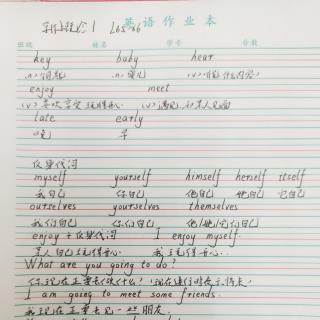 L65-66 英语作业本
班级 姓名 学号 分数
key baby hear
(n) (n) (v)
enjoy meet
(v) (v)
late early
早
反身代词
myself yourself himself herself itself
我自己 你自己 他自己 她自己 它自己
ourselves yourselves themselves
我们自己 你们自己 他/她/它们自己
enjoy + 反身代词 I enjoy myself.
某人自己玩得开心 我玩得开心.
What are you going to do?
你现在正要去做什么?
I am going to meet some friends.
我现在正要去见一些朋友